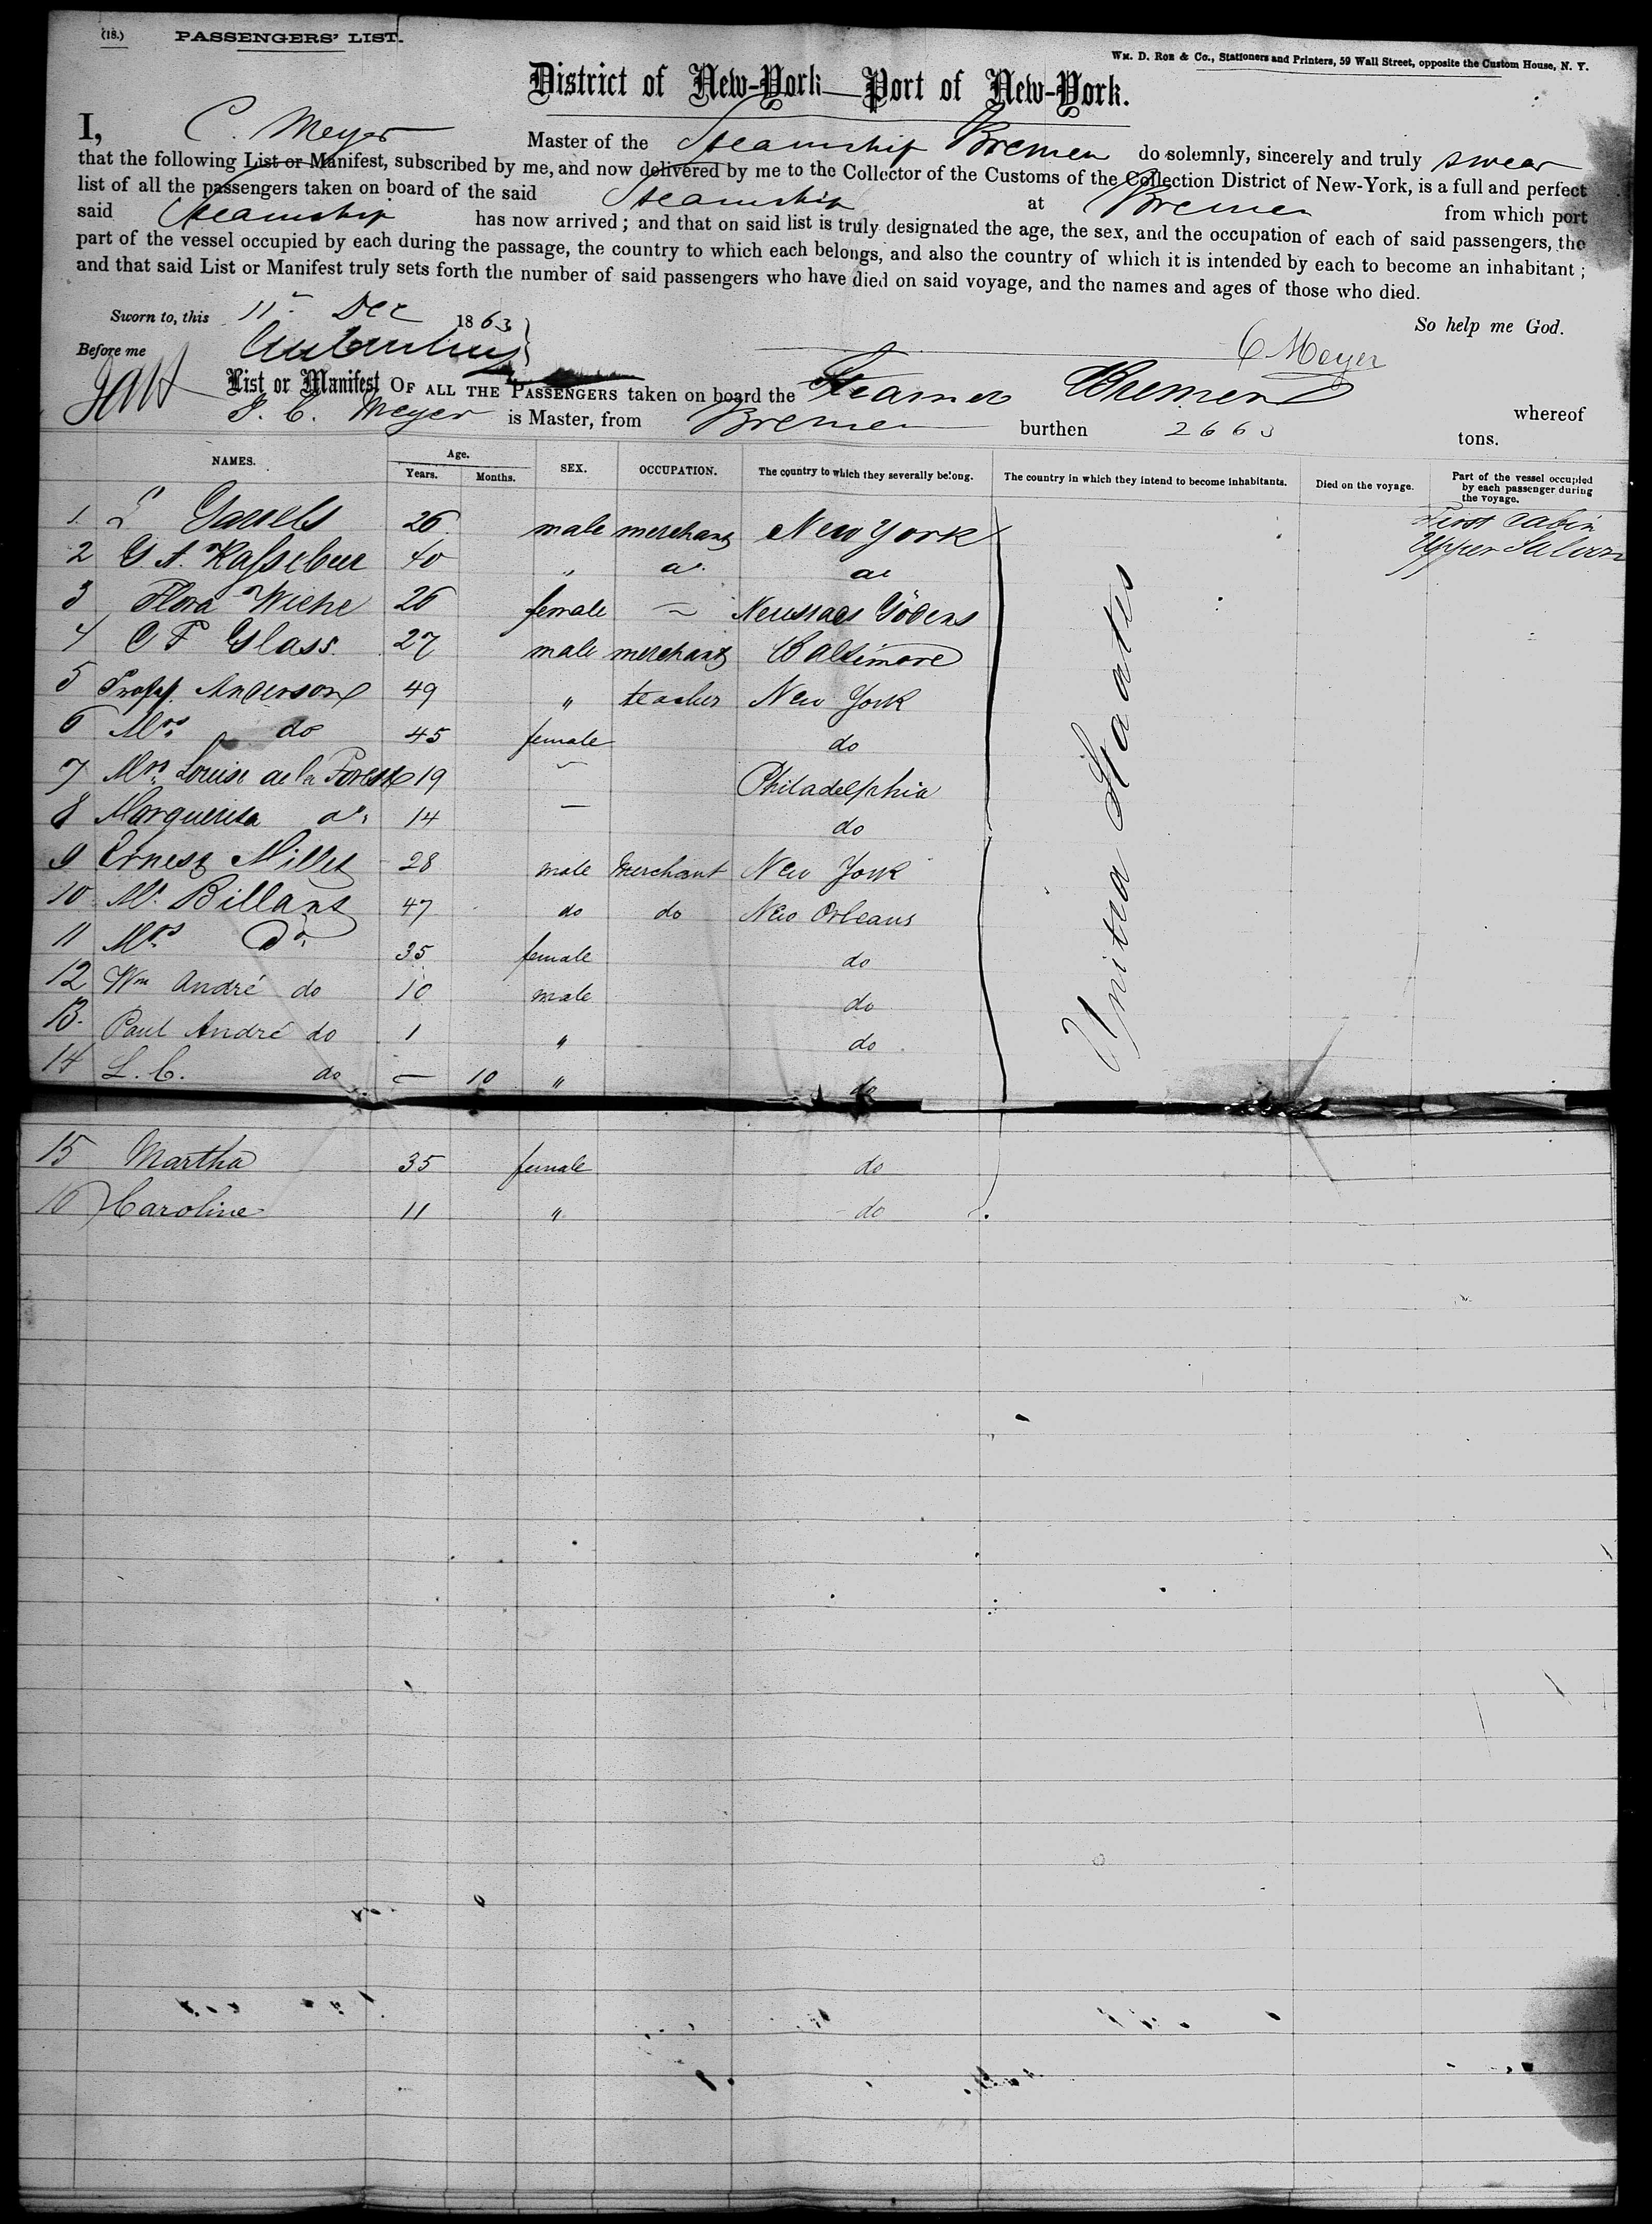 (18.) PASSENGERS' LIST.
WM. D. ROE & Co., Stationers and Printers, 59 Wall Street, opposite the Custom House, N. Y.
District of New-York—Port of New-York.
I, C. Meyer Master of the Steamship Bremen do solemnly, sincerely and truly swear
that the following List or Manifest, subscribed by me, and now delivered by me to the Collector of the Customs of the Collection District of New-York, is a full and perfect
list of all the passengers taken on board of the said Steamship at Bremen from which port
said Steamship has now arrived; and that on said list is truly designated the age, the sex, and the occupation of each of said passengers, the
part of the vessel occupied by each during the passage, the country to which each belongs, and also the country of which it is intended by each to become an inhabitant;
and that said List or Manifest truly sets forth the number of said passengers who have died on said voyage, and the names and ages of those who died.
Sworn to, this 11" Dec 1863 So help me God.
Before me C Meyer
List or Manifest OF ALL THE PASSENGERS taken on board the Steamer Bremen whereof
C. Meyer is Master, from Bremen burthen 2663 tons.
NAMES. Age. Years. Months. SEX. OCCUPATION. The country to which they severally belong. The country in which they intend to become inhabitants. Died on the voyage. Part of the vessel occupied by each passenger during the voyage.
1. 26 male merchant New York First Cabin
2 40 " do do Upper Saloon
3 Flora Wiehe 26 female ~ Neustadt Gödens
4 C F Glass 27 male merchant Baltimore
5 Profss. Anderson 49 " teacher New York
6 Mrs. do 45 female do
7 Mrs. Louise de la Forest 19 " Philadelphia
8 Marguerita do. 14 — do
9 Ernest Millet 28 male Merchant New York
10 Mr. Billant 47 do do New Orleans
11 Mrs Do. 35 female do
12 Wm André do 10 male do
13. Paul André do 1 " do
14 L. C. do — 10 " do
15 Martha 35 female do
16 Caroline 11 " do
United Staates